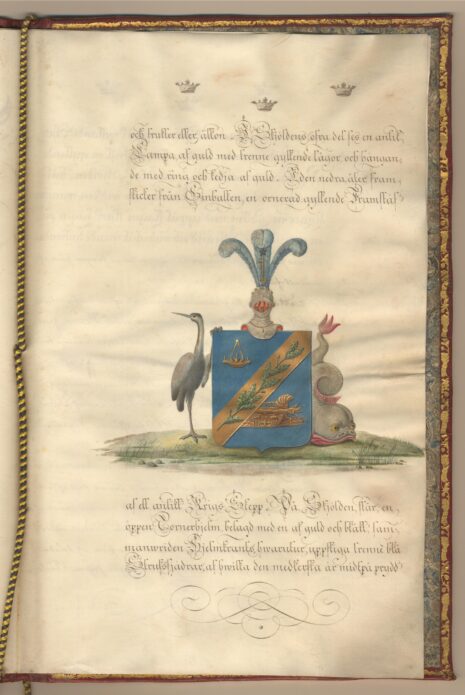 och frukter eller ållon. I Skjöldens öfra del ses en antik
Lampa af guld med trenne gyllende lågor och hängan,
de med ring och kedja af guld. I den nedra åter fram,
skjuter från Ginbalken en ornerad gyllende Framstäf
af ett antikt Krigs Skepp. På Skölden står en
öppen Tornerhjelm belagd med en af guld och blått sam,
manwriden Hjelmkrants, hwarutur uppstiga trenne blå
Strutsfjädrar, af hwilka den medlersta är midtpå prydd